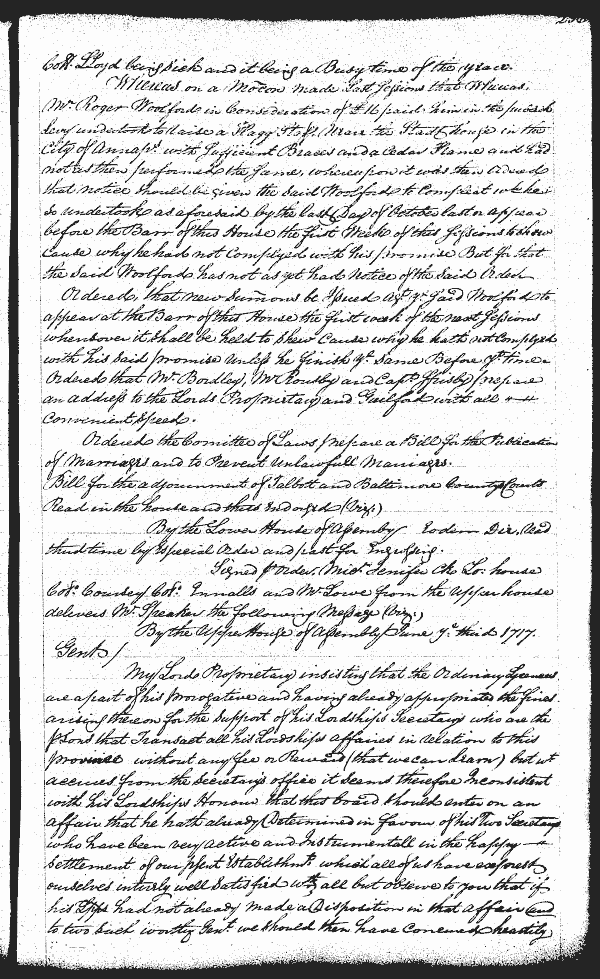 Coll. Lloyd being sick and it being a Busy time of the year.
Whereas on a Motion made Last Sessions that Whereas
Mr. Roger Woolford in Consideration of £16 paid him in the publick
Levy undertook to Raise a Flagg Staff near the Stadt house in the
City of Annaps. with Sufficient Braces and a Cedar Frame and had
not as then performed the same, whereupon it was then Ordered
that notice should be given the said Woolford to Compleat wt. he
so undertook as aforesaid by the last Day of October last or appear
before the Barr of this House the first Week of this Sessions to shew
Cause why he had not Complyed with his promise But for that
the said Woolford has not as yet had Notice of the said Order
Ordered, that new Summons be Issued agt. ye. said Woolford to
appear at the Barr of this House the first week of the next Sessions
whensoever it shall be held to Shew Cause why he hath not Complyed
with his said promise Unless he finish ye. Same Before yt. time
Ordered that Mr. Bordley, Mr. Rousby and Capt. Frisby prepare
an address to the Lords Proprietary and Guilford with all
Convenient Speed.
Ordered the Comittee of Laws prepare a Bill for the Publication
of Marriages and to Prevent Unlawfull Marriages.
Bill for the adjournment of Talbott and Baltimore County Courts
Read in the house and thus Endorsed (Viz.)
By the Lower House of Assembly Eodem Die, Read
third time by especial Order and past for Engrossing.
Signed p Order, Mich. Jenifer Clk Lo: house
Coll. Coursey Coll. Ennalls and Mr. Lowe from the Upper house
delivers Mr. Speaker the following Message (Viz.)
By the Upper House of Assembly June ye. third 1717.
Gent/
My Lord Proprietary insisting that the Ordinary Lycences
are a part of his prerogative and having already appropriated the fines
arising thereon for the Support of his Lordships Secretarys who are the
psons that Transact all his Lordships affaires in Relation to this
Province without any fee or Reward (that we can learn) but wt.
accrues from the Secretarys office it seems therefore Inconsistent
with his Lordships Honour that this board should enter on an
affair that he hath already Determined in favour of his two Secretarys
who have been very active and Instrumentall in the happy
settlement of our psent Establishmt. which all of us have exprest
ourselves intirely well Satisfied wth. all but observe to you that if
his Lpps had not already made a Disposition in that affair and
to two such worthy Gent. we should then have Concurred heartily